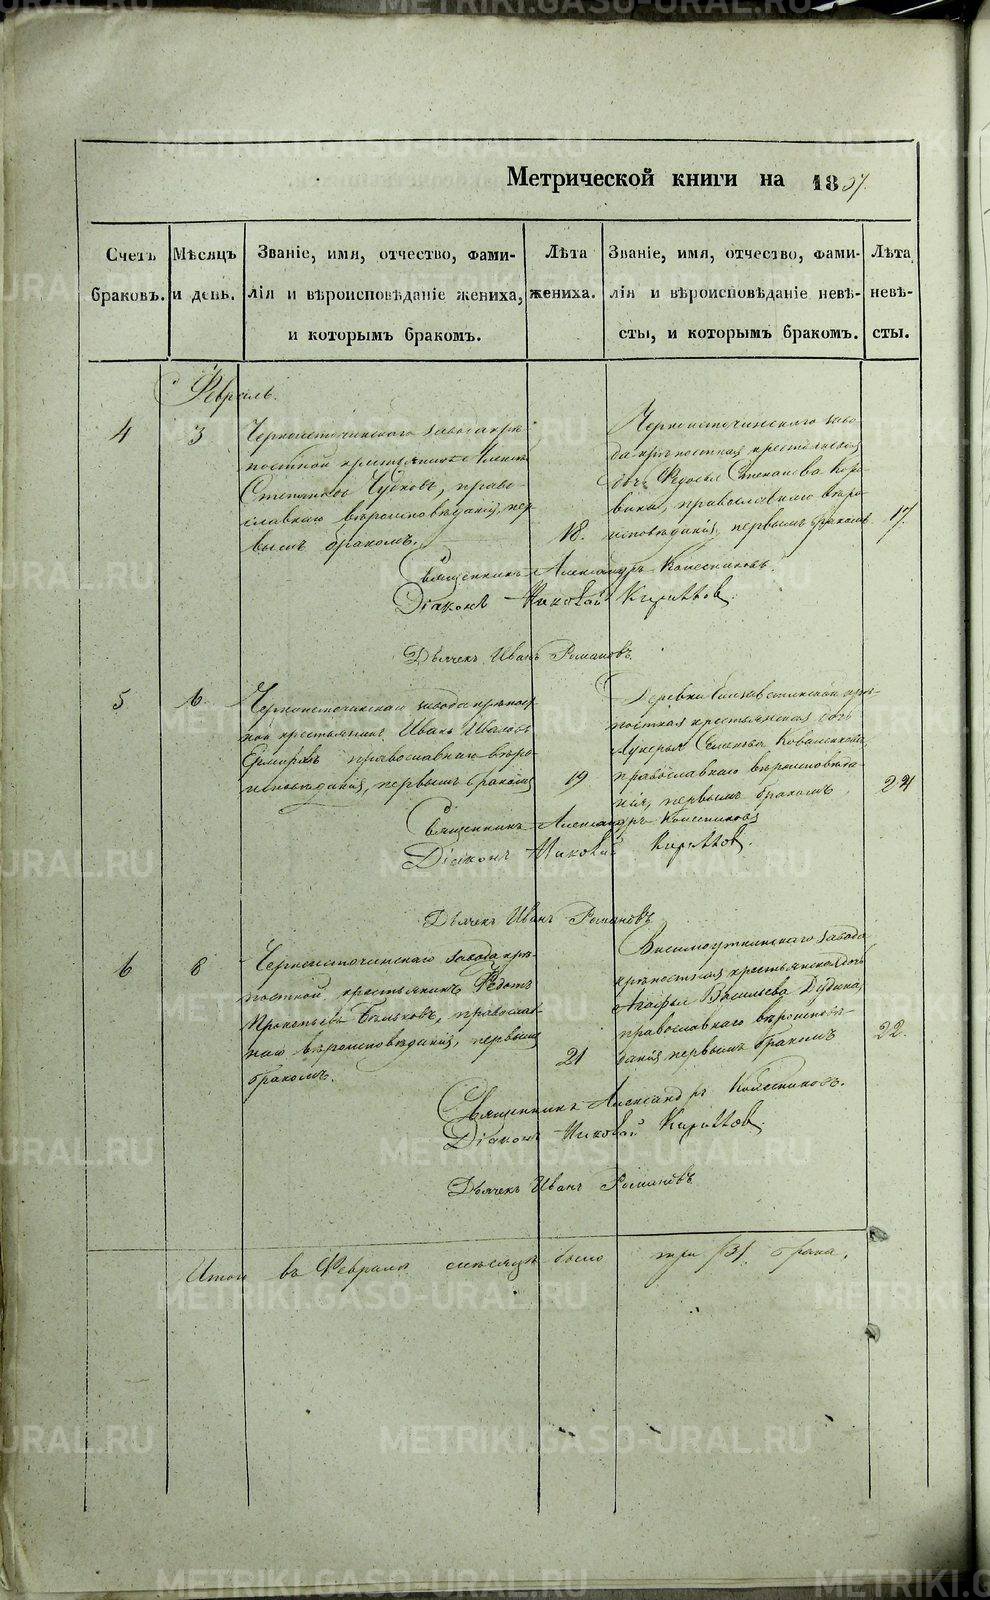 METRIKI.GASO-URAL.RU
Метрической книги на 1857.
Счетъ браковъ.
Мѣсяцъ и день.
Званіе, имя, отчество, фами-
лія и вѣроисповѣданіе жениха,
и которымъ бракомъ.
Лѣта
жениха.
Званіе, имя, отчество, фами-
лія и вѣроисповѣданіе невѣ-
сты, и которымъ бракомъ.
Лѣта
невѣ-
сты.
Февраль.
4
3
Черноисточинскаго завода крѣ-
постной крестьянинъ
Степановъ Чудковъ, право-
славнаго вѣроисповѣданія, пер-
вымъ бракомъ.
18.
Черноисточинскаго заво-
да крѣпостная крестьянская
дочь Федосья Степанова
православнаго вѣро-
исповѣданія, первымъ бракомъ
17.
Священникъ Александръ Колесниковъ.
Діаконъ Николай
Дьячекъ Иванъ Романовъ.
5
6
Черноисточинскаго завода крѣпост-
ной крестьянинъ Иванъ Ивановъ
православнаго вѣро-
исповѣданія, первымъ бракомъ
19
Деревни крѣ-
постная крестьянская дочь
Лукерья Семенова
православнаго вѣроисповѣда-
нія, первымъ бракомъ,
Священникъ Александръ Колесниковъ
Діаконъ Николай
Дьячекъ Иванъ Романовъ
6
8
Черноисточинскаго завода крѣ-
постной крестьянинъ Федотъ
Прокопьевъ Бѣльковъ, православ-
наго вѣроисповѣданія, первымъ
бракомъ.
21
Висимоуткинскаго завода
крѣпостная крестьянская дочь
Агафья Васильева Дудина,
православнаго вѣроисповѣ-
данія первымъ бракомъ
22.
Священникъ Александръ Колесниковъ.
Діаконъ Николай
Дьячекъ Иванъ Романовъ
Итого въ Февралѣ мѣсяцѣ было три /3/ брака.